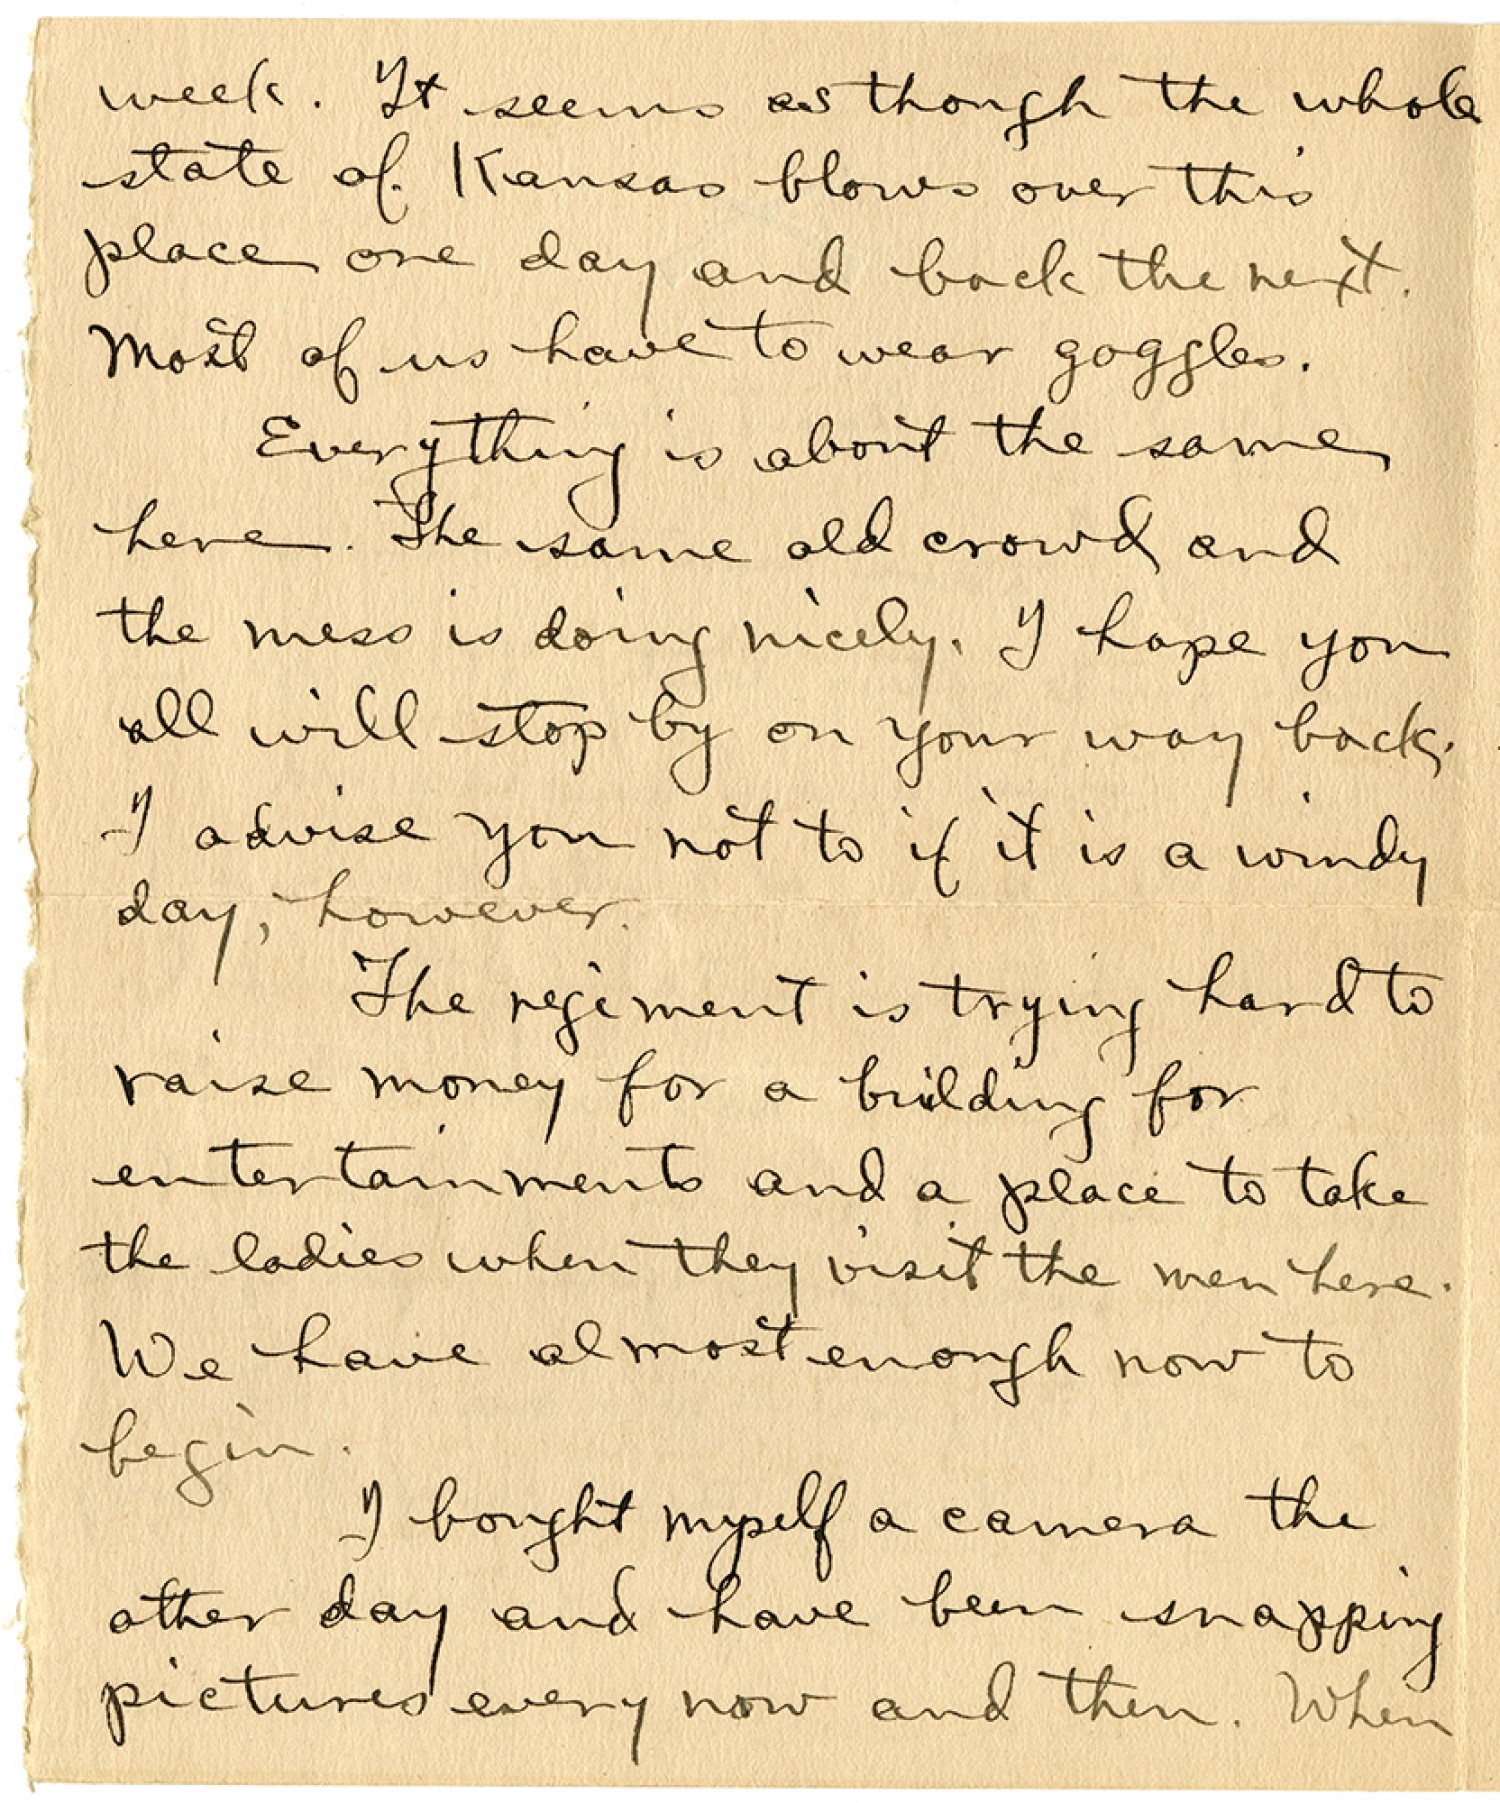 week. It seems as though the whole
state of Kansas blows over this
place one day and back the next.
Most of us have to wear goggles.
Everything is about the same
here. The same old crowd and
the mess is doing nicely. I hope you
all will stop by on your way back.
I advise you not to if it is a windy
day, however.
The regiment is trying hard to
raise money for a building for
entertainments and a place to take
the ladies when they visit the men here.
We have almost enough now to
begin.
I bought myself a camera the
other day and have been snapping
pictures every now and then. When